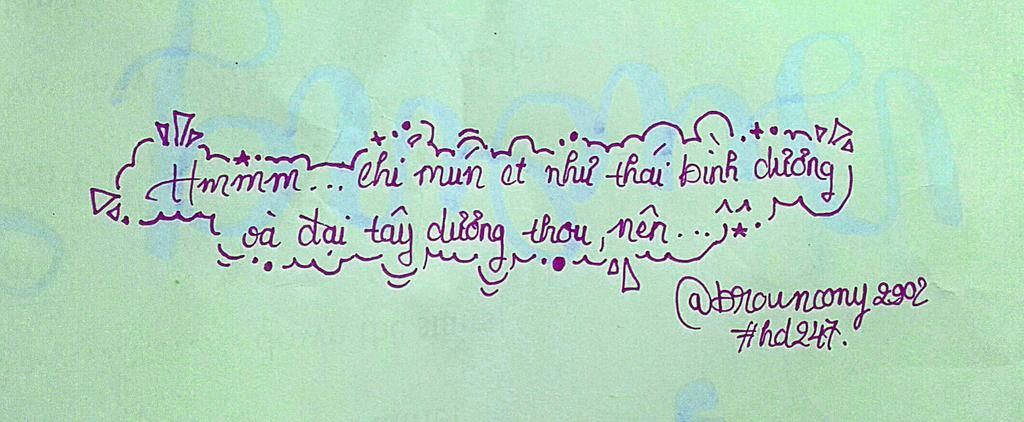 Hmmm... chỉ mún ct như thái bình dương
và đại tây dương thou, nên...
@brouncony2902
#hd247.